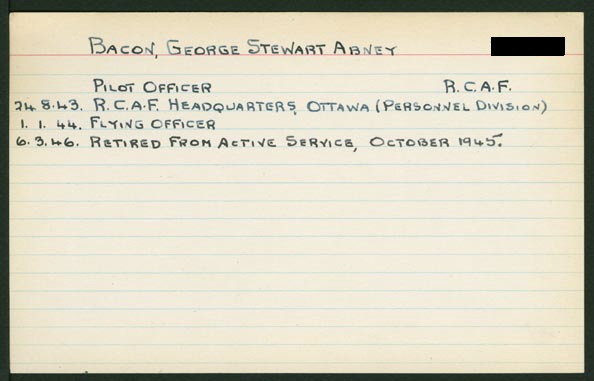 BACON, GEORGE STEWART ABNEY
PILOT OFFICER R.C.A.F.
24.8.43. R.C.A.F. HEADQUARTERS, OTTAWA (PERSONNEL DIVISION)
1. 1. 44. FLYING OFFICER
6.3.46. RETIRED FROM ACTIVE SERVICE, OCTOBER 1945.